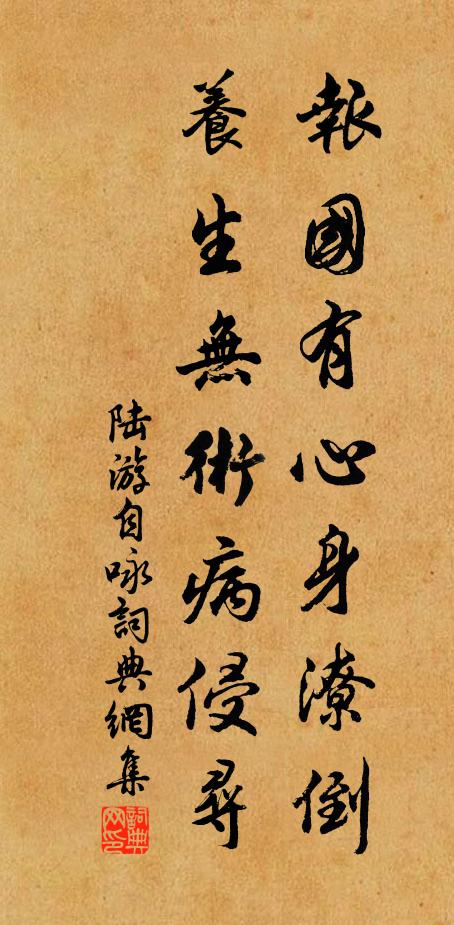 報國有心身潦倒
養生無術病侵尋
陆游自咏詞典網集
詞典网印